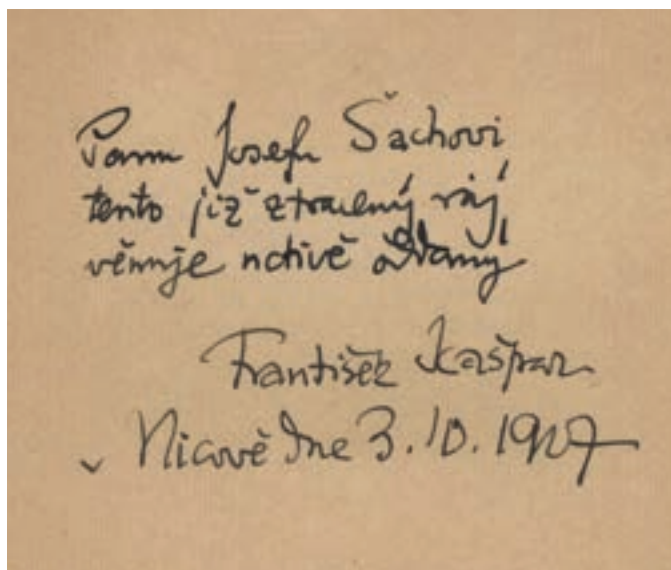 Panu Josefu Šachovi
tento již ztracený ráj
věnuje uctivě oddaný
František Kašpar
v Nicově dne 3.10.1927